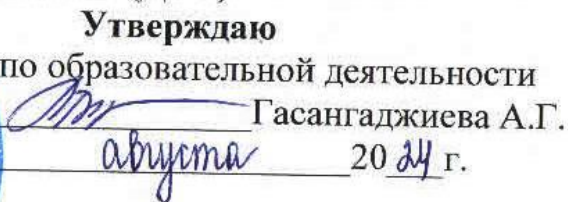 Утверждаю
по образовательной деятельности
Гасангаджиева А.Г.
августа 2024 г.